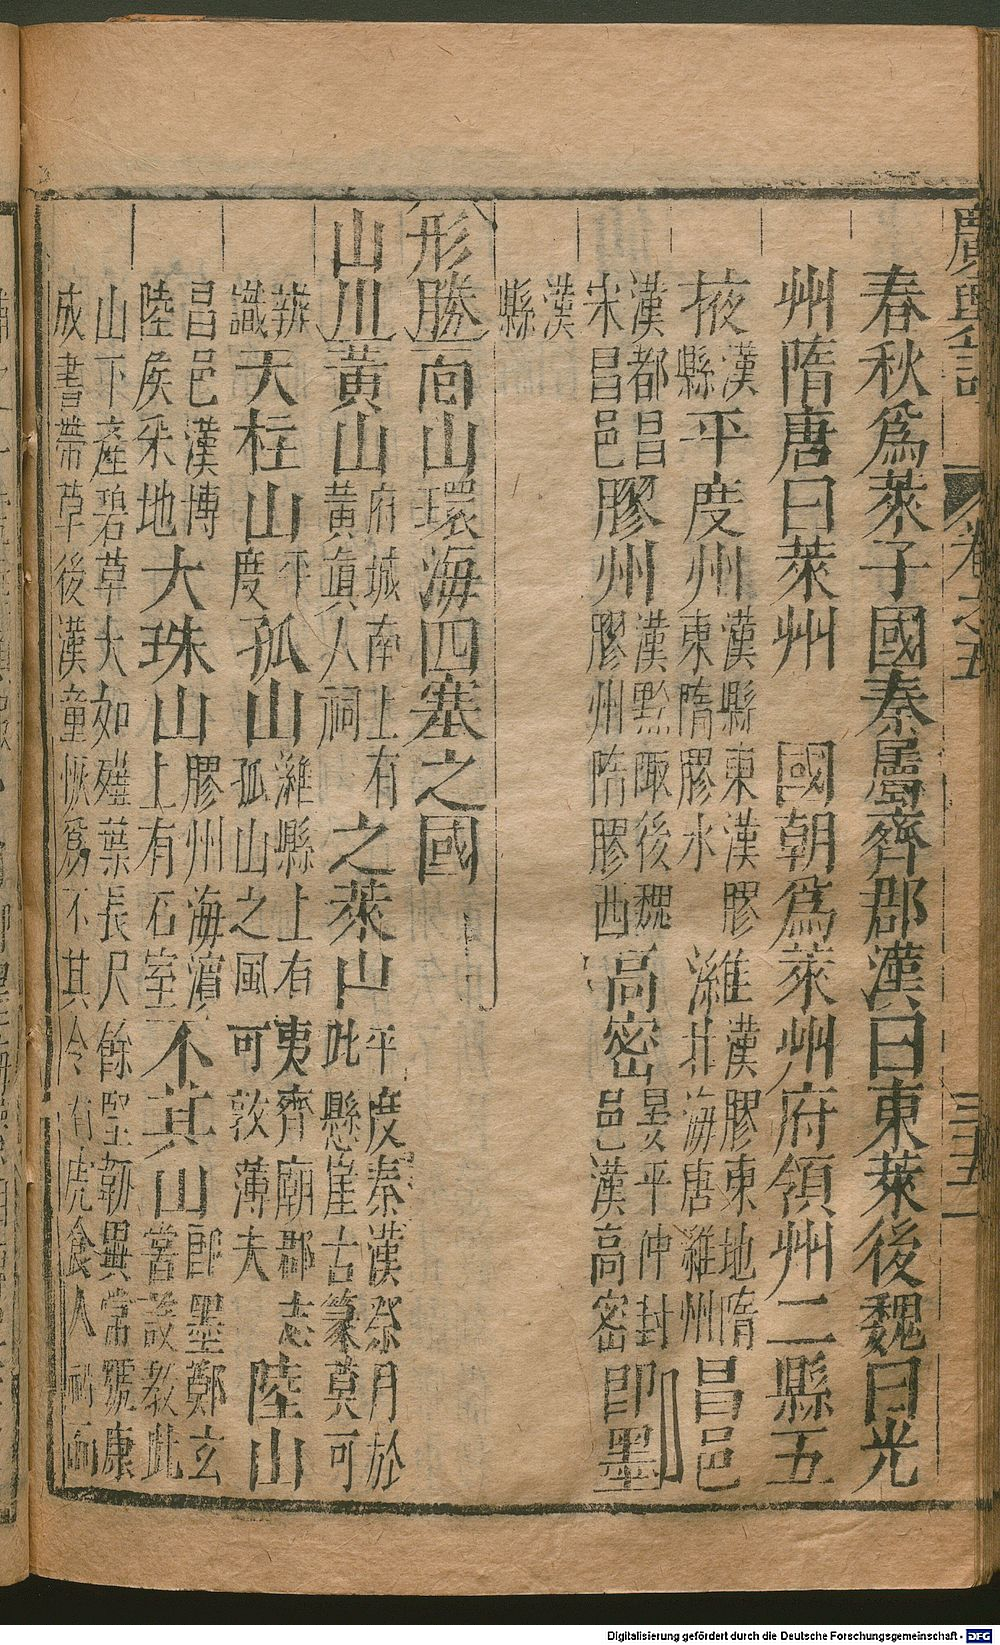 廣輿記 卷之五 三五
春秋爲萊子國秦屬齊郡漢曰東萊後魏曰光
州隋唐曰萊州 國朝爲萊州府領州二縣五
掖漢縣平度州漢縣東漢膠東隋膠水濰漢膠東地隋北海唐濰州昌邑
漢都昌宋昌邑膠州漢黔陬後魏膠州隋膠西高密晏平仲封邑漢高密卽墨
漢縣
形勝面山環海四塞之國
山川黃山府城南上有黃眞人祠之萊山平度秦漢祭月於此懸崖古篆莫可
辨識天柱山平度孤山濰縣上有孤山之風夷齊廟郡志可敦薄夫陸山
昌邑漢博陸侯采地大珠山膠州海濱上有石室不其山卽墨鄭玄嘗設教此
山下產碧草大如薤葉長尺餘堅韌異常號康
成書帶草後漢童恢爲不其令有虎食人
Digitalisierung gefördert durch die Deutsche Forschungsgemeinschaft - DFG